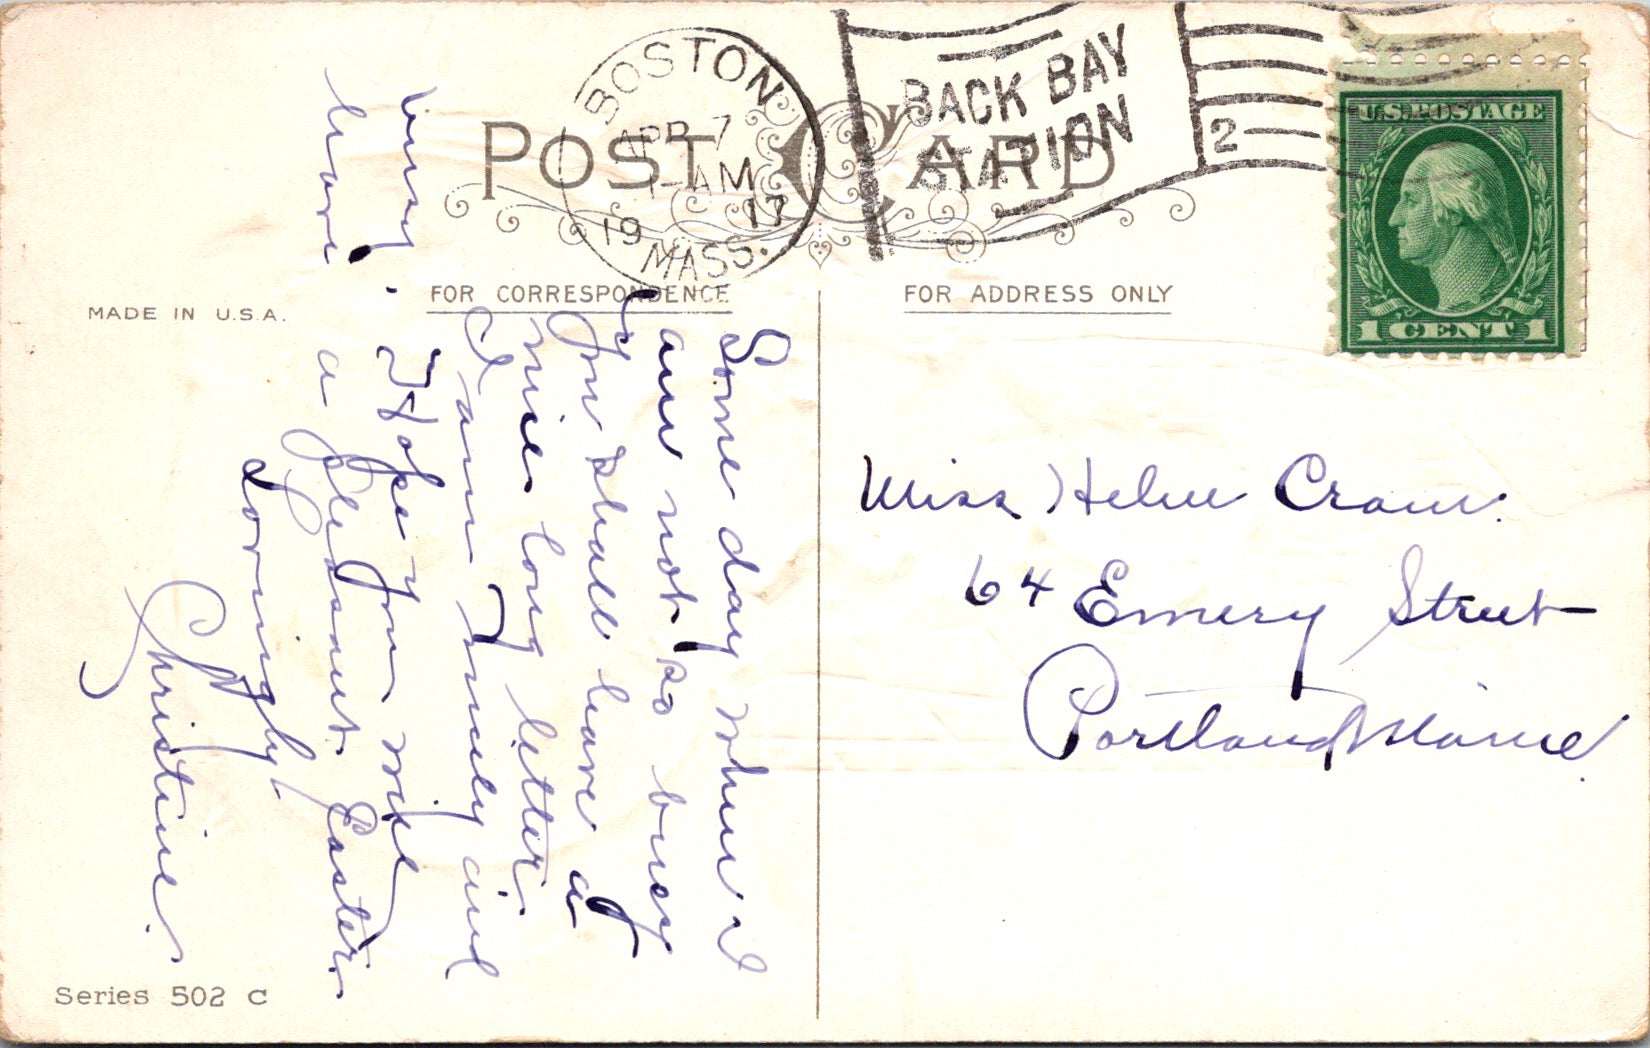 POST CARD
BOSTON
APR 7
1-AM
19 17
MASS.
BACK BAY
STATION
2
U.S. POSTAGE
1 CENT 1
MADE IN U.S.A.
FOR CORRESPONDENCE
FOR ADDRESS ONLY
Some day when I
am not so busy
you shall have a
nice long letter.
I am nicely and
busy. I Hope you will
have a pleasant Easter.
Lovingly
Christine.
Miss Helen Cram.
64 Emery Street
Portland Maine.
Series 502 C